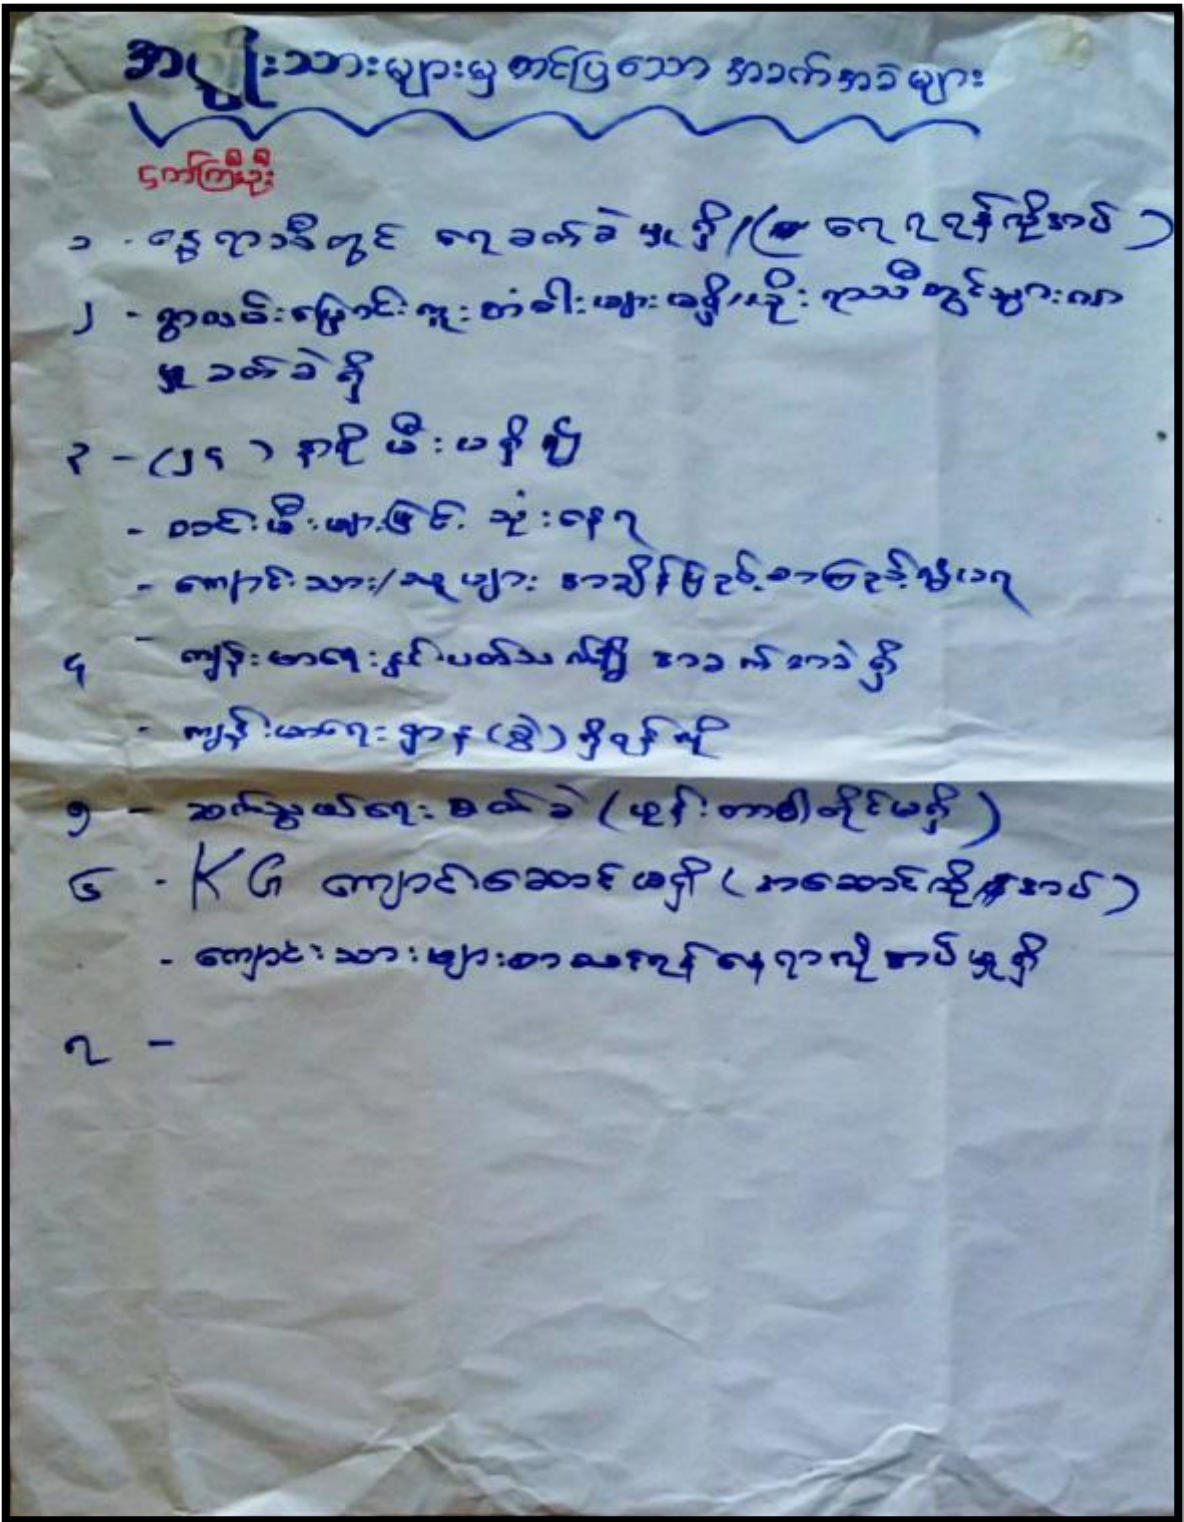 အမျိုးသားများမှ တင်ပြသော အခက်အခဲများ
ငှက်ကြီးဦး
၁ - နွေရာသီတွင် ရေခက်ခဲမှုရှိ/( ရေရရန်လိုအပ် )
၂ - ရွာလမ်းမြောင်းကူးတံခါးများမရှိ၊ မိုးရာသီတွင်သွားလာ
မှုခတ်ခဲရှိ
၃ - (၂၄ ) နာရီ မီး မရှိ၍
- ဖယင်းမီးများဖြင့် သုံးနေရ
- ကျောင်းသား/သူများ အချိန်ပြည့်စာကြည့်လို့မရ
၄ - ကျန်းမာရေးနှင့်ပတ်သက်၍ အခက်အခဲရှိ
- ကျန်းမာရေးဌာန (ခွဲ) ရှိရန်လို
၅ - ဆက်သွယ်ရေးခတ်ခဲ (ဖုန်းတာဝါတိုင်မရှိ )
၆ - KG ကျောင်းဆောင်မရှိ ( အဆောင်လိုအပ် )
- ကျောင်းသားများစာသင်ရန်နေရာလိုအပ်မှုရှိ
၇ -